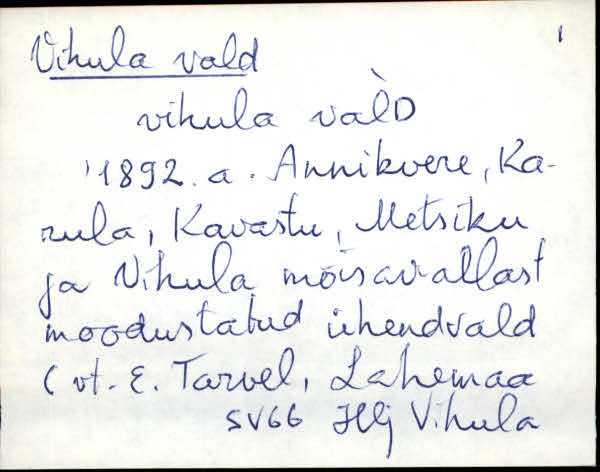 Vihula vald 1
vihula val̀D
'1892. a. Annikvere, Ka-
rula, Kavastu, Metsiku
ja Vihula mõisavallast
moodustatud ühendvald
(vt. E. Tarvel, Lahemaa
SV66 Hlj Vihula